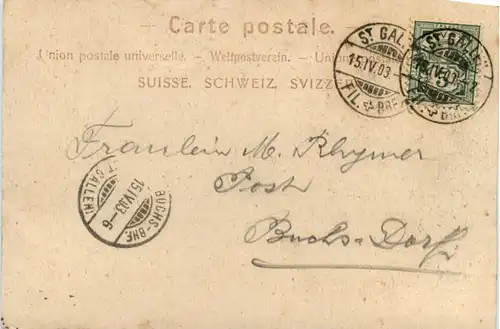 Carte postale.
Union postale universelle. - Weltpostverein. - Union postale
SUISSE. SCHWEIZ. SVIZZERA
ST GALLEN
15.IV.03
FIL. BRF.
ST GALLEN
15.IV.03
BRF.
5
Fräulein M. Rhymer
Post
Buchs-Dorf
BUCHS-BHF.
15.IV.03-6
(ST GALLEN)